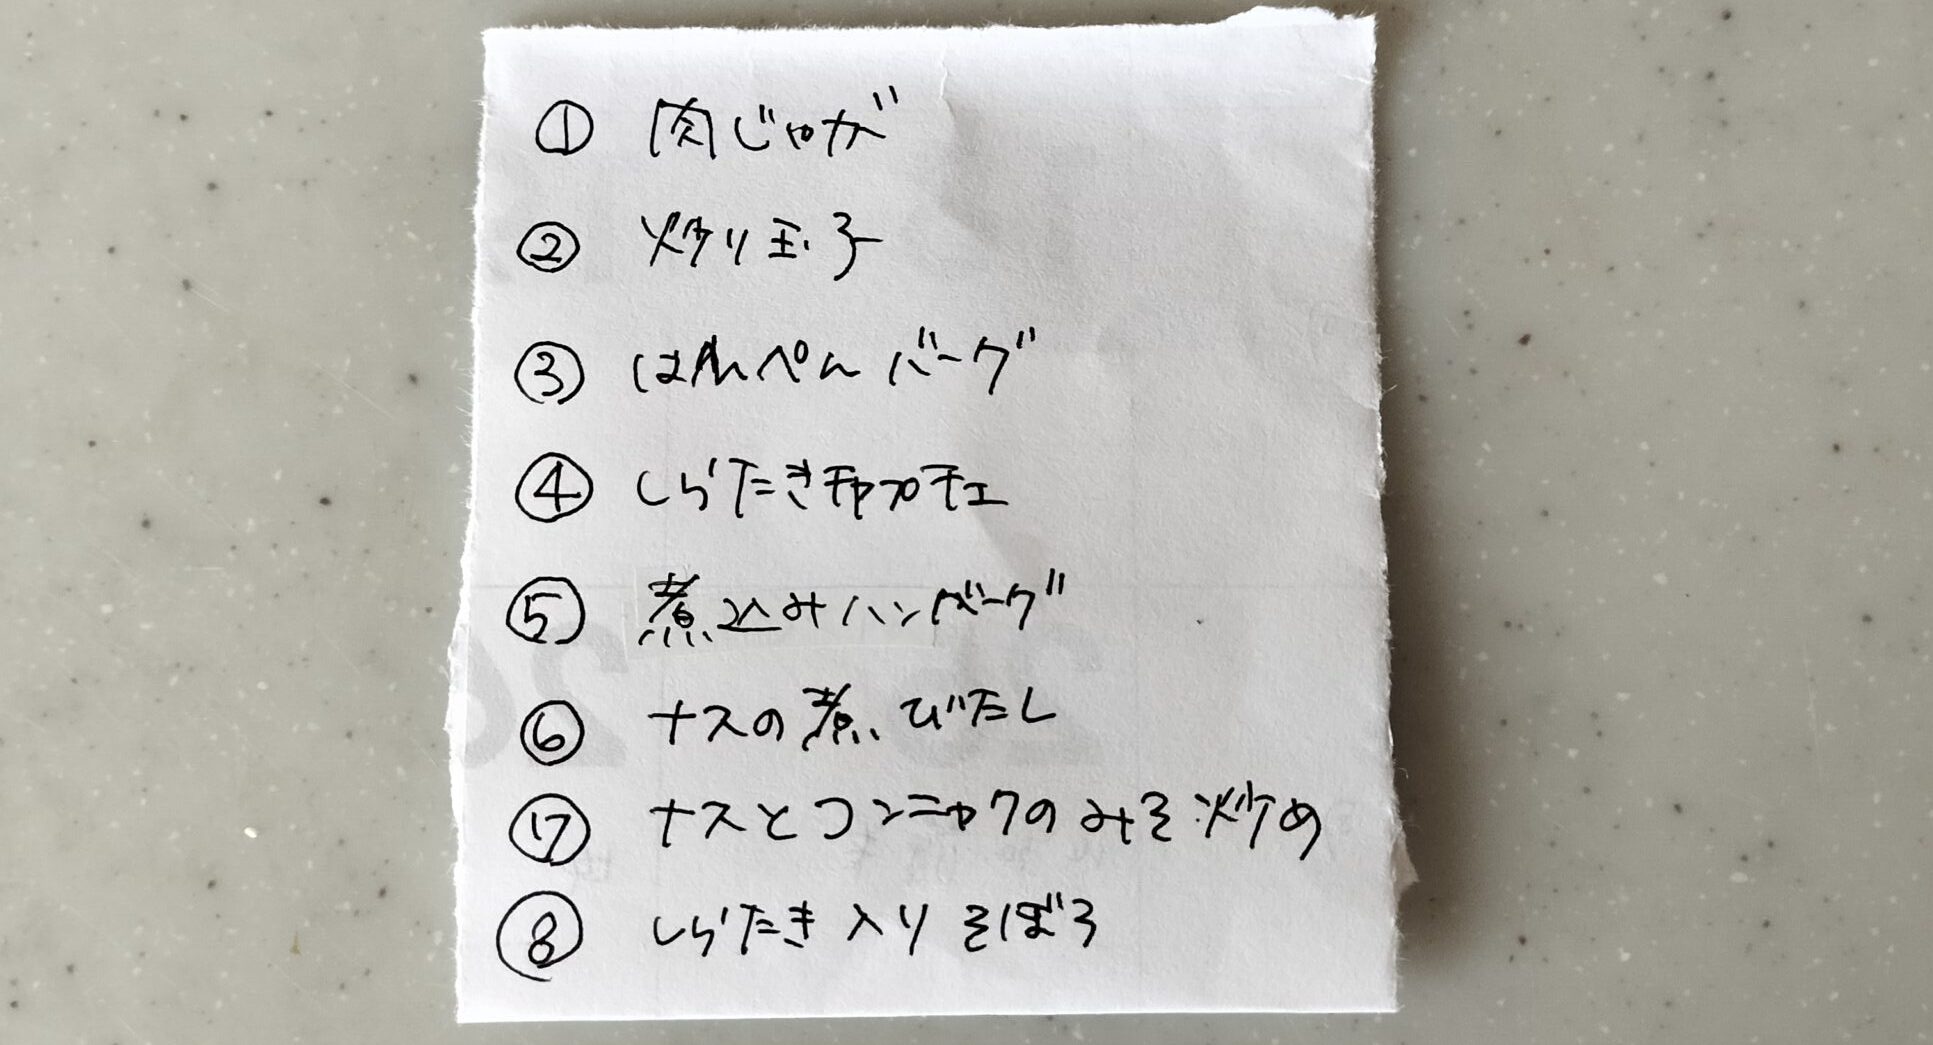 ① 肉じゃが
② 炒り玉子
③ はんぺんバーグ
④ しらたきチャプチェ
⑤ 煮込みハンバーグ
⑥ ナスの煮びたし
⑦ ナスとコンニャクのみそ炒め
⑧ しらたき入りそぼろ